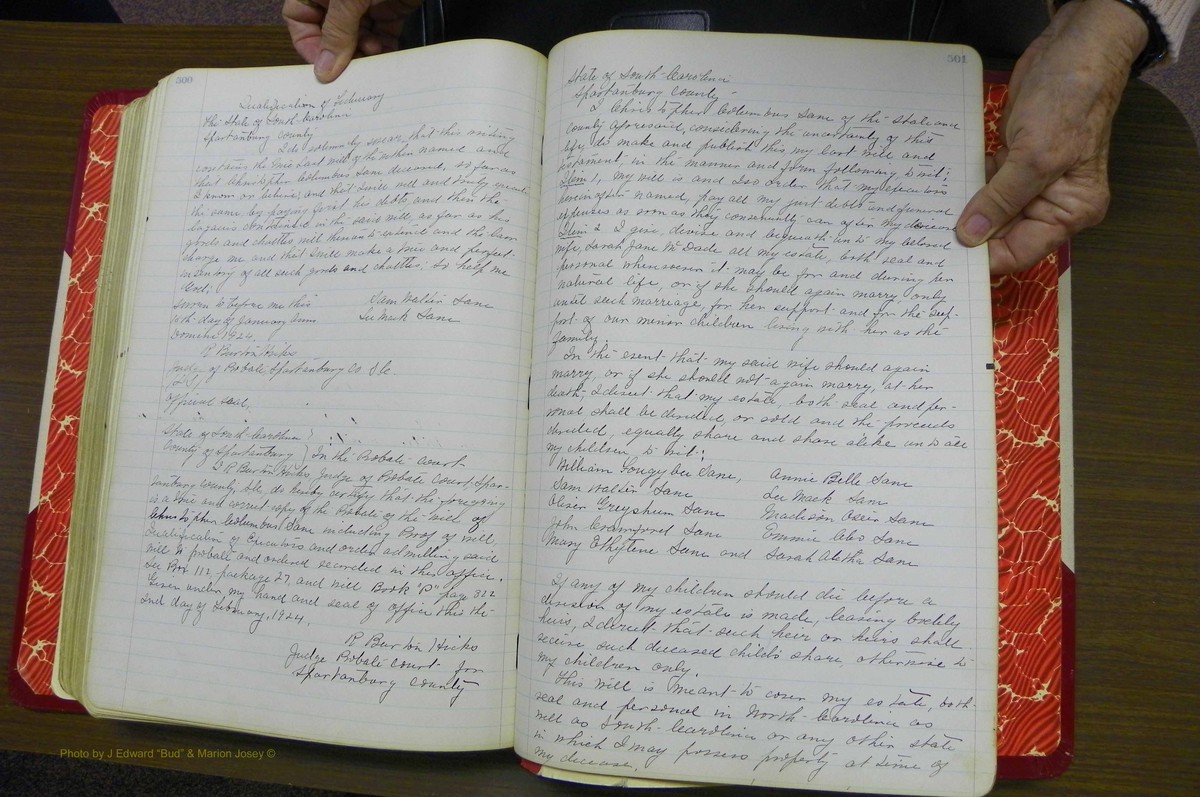 500
Qualification of
The State of South Carolina
Spartanburg County
I do solemnly swear, that this writing
contains the true last will of the within named and
that Christopher Columbus Lane deceased, so far as
I know or believe; and that I will well and truly execute
the same by paying first his debts and then the
legacies contained in the said will, as far as his
goods and chattles will thereunto extend and the law
charge me and that I will make a true and perfect
inventory of all such goods and chattles; So help me
God;
Sworn to before me this Sam Walter Lane
day of January Anno Lee Mack Lane
Domini 1924.
R Burton Hicks
Judge of Probate Spartanburg Co S.C.
official seal.
State of South Carolina
County of Spartanburg } In the Probate Court
I R Burton Hicks, Judge of Probate Court Spar-
tanburg County, S.C., do hereby certify that the foregoing
is a true and correct copy of the Probate of the will of
Christopher Columbus Lane including Proof of will,
Qualification of Executors and order admitting said
will to probate and ordered recorded in this office.
See Box 112, package 27, and will Book "P" page 322
Given under my hand and seal of office this the
2nd day of February, 1924.
R Burton Hicks
Judge Probate Court for
Spartanburg County
501
State of South Carolina
Spartanburg County -
I Christopher Columbus Lane of the state and
county aforesaid, considering the uncertainty of this
life, do make and publish this my last will and
testament, in the manner and form following to wit;
Item 1, my will is and I so order that my executors
herein after named, pay all my just debts and funeral
expenses as soon as they conveniently can after my decease
Item 2 I give, devise and bequeath unto my beloved
wife, Sarah Jane McDade all my estate, both real and
personal whensoever it may be for and during her
natural life, or if she should again marry, only
until such marriage, for her support and for the sup-
port of our minor children living with her as the
family.
In the event that my said wife should again
marry, or if she should not again marry, at her
death, I direct that my estate both real and per-
sonal shall be divided, or sold and the proceeds
divided, equally share and share alike unto all
my children to wit;
William Lane, Annie Belle Lane
Sam Walter Lane Lee Mack Lane
Oliver Greyshum Lane Madison Lane
John Crawford Lane Emmie Cleo Lane
Mary Ethylene Lane and Sarah Aletha Lane
If any of my children should die before a
division of my estate is made, leaving bodily
heirs, I direct that such heir or heirs shall
receive such deceased child's share, otherwise to
my children only.
This will is meant to cover my estate, both
real and personal in North Carolina as
well as South Carolina or any other state
in which I may possess property at time of
my decease.
Photo by J Edward "Bud" & Marion Josey ©